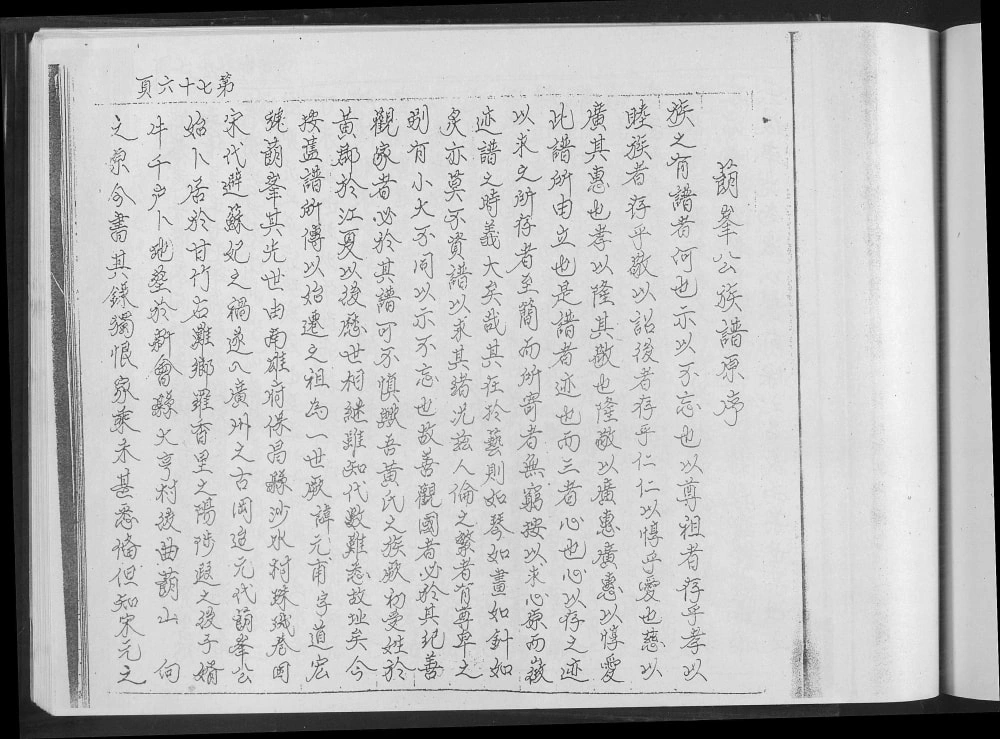 第七十六頁
蓢峯公族譜原序
族之有譜者何也示以不忘也以尊祖者存乎孝以
睦族者存乎敬以詔後者存乎仁仁以惇乎愛也慈以
廣其惠也孝以隆其敬也隆敬以廣惠廣惠以惇愛
此譜所由立也是譜者迹也而三者心也心以存之迹
以求之所存者至簡而所寄者無窮按以求心原而嶶
迹譜之時義大矣哉其在於藝則如琴如畫如針如
炙亦莫不資譜以求其緒况兹人倫之繫者有尊卑之
別有小大不同以示不忘也故善觀國者必於其紀善
觀家者必於其譜可不慎歟吾黄氏之族厥初受姓於
黄郡於江夏以後歷世相継雖知代數難悉故址矣今
按舊譜所傳以始遷之祖為一世厥諱元甫字道宏
號蓢峯其先世由南雄府保昌縣沙水村珠璣巷因
宋代避蘇妃之禍遂入廣州之古岡迨元代蓢峯公
始卜居於甘竹右灘鄉羅香里之陽涉叚之後子婿
牛千户卜地𦵏於新會縣大亨村後曲蓢山 向
之原今書其錄獨恨家乘未甚悉俻但知宋元之